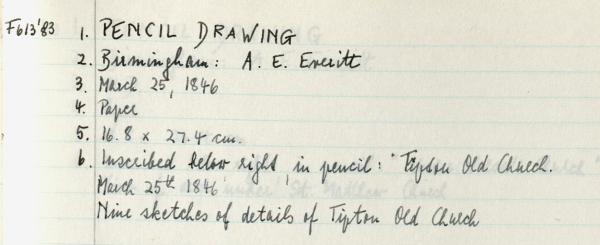 F613'83 1. PENCIL DRAWING
2. Birmingham: A. E. Everitt
3. March 25, 1846
4. Paper
5. 16.8 x 27.4 cm.
6. Inscribed below right, in pencil: "Tipton Old Church.
March 25th 1846'
Nine sketches of details of Tipton Old Church